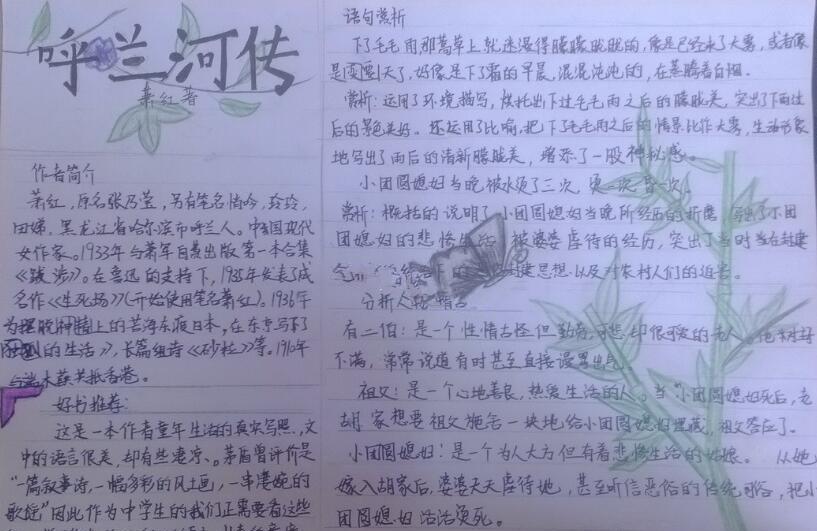 呼兰河传
萧红著
作者简介
萧红,原名张乃莹,另有笔名悄吟,玲玲,
田娣,黑龙江省哈尔滨市呼兰人。中国现代
女作家。1933年与萧军自费出版第一本合集
《跋涉》。在鲁迅的支持下,1935年发表了成
名作《生死场》(开始使用笔名萧红)。1936年
为摆脱精神上的苦海东渡日本,在东京写下了
的生活》,长篇组诗《砂粒》等。1940年
与端木蕻共抵香港。
好书推荐:
这是一本作者童年生活的真实写照,文
中的语言很美,却有些凄凉、。茅盾曾评价是
“一篇叙事诗,一幅多彩的风土画,一串凄婉的
歌谣”因此作为中学生的我们正需要看这些
语句赏析
下了毛毛雨那蒿草上就迷漫得朦朦胧胧的,像是已经来了大雾,或者像
是要变天了,好像是下了霜的早晨,混混沌沌的,在蒸腾着白烟。
赏析:运用了环境描写,烘托出下过毛毛雨之后的朦胧美,突出了下雨过
后的景色美好。还运用了比喻,把下了毛毛雨之后的情景比作大雾,生动形象
地写出了雨后的清新朦胧美,增添了一股神秘感。
小团圆媳妇当晚被水烫了三次,烫一次,昏一次。
赏析:概括的说明了小团圆媳妇当晚所经历的折磨,写出了小团
团媳妇的悲惨生活,被婆婆虐待的经历,突出了当时当在封建
封建思想以及对农村人们的迫害。
分析人物
有二伯:是一个性情古怪但勤劳,可悲却很可爱的老人。他对
不满,常常说道有时甚至直接谩骂出
祖父:是一个心地善良,热爱生活的人。当“小团圆媳妇死后,老
胡家想要祖父施舍一块地给小团圆媳妇埋藏,祖父答应了。
小团圆媳妇:是一个为人大方但有着悲惨生活的姑娘。从她
嫁入胡家后,婆婆天天虐待她,甚至听信恶俗的传统,把小
团圆媳妇活活烫死。